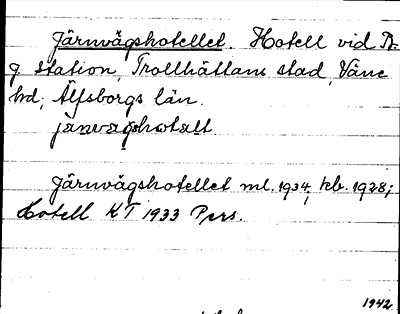 Järnvägshotellet. Hotell vid Tr-
g station, Trollhättans stad, Väne
hd; Älfsborgs län.
järnvägshotall
Järnvägshotellet ml. 1934, kb. 1928;
Hotell KT 1933 Pers.
1942